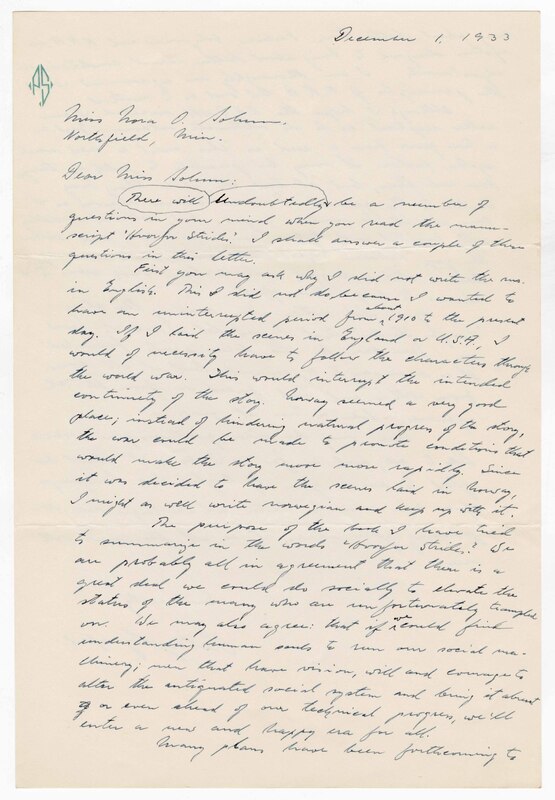 December 1, 1933
AS
Miss Nora O. Solum.
Northfield, Min.
Dear Miss Solum:
There will Undoubtedly be a number of
questions in your mind when you read the manu-
script "Hvorfor Strides". I shall answer a couple of these
questions in this letter.
First you may ask why I did not write the ms.
in English. This I did not do because I wanted to
have an uninterrupted period from about 1910 to the present
day. If I laid the scenes in England or U.S.A., I
would of necessity have to follow the characters through
the world war. This would interrupt the intended
continuity of the story. Norway seemed a very good
place; instead of hindering natural progress of the story,
the war could be made to promote conditions that
would make the story move more rapidly. Since
it was decided to have the scenes laid in Norway,
I might as well write norwegian and keep up with it.
The purpose of the book I have tried
to summarize in the words "Hvorfor Strides." We
are probably all in agreement that there is a
great deal we could do socially to elevate the
status of the many who are unfortunately trampled
on. We may also agree: that if we could find
understanding human souls to run our social ma-
chinery; men that have vision, will and courage to
alter the antiquated social system and bring it abreast
of or even ahead of our technical progress, we'll
enter a new and happy era for all.
Many plans have been forthcoming to